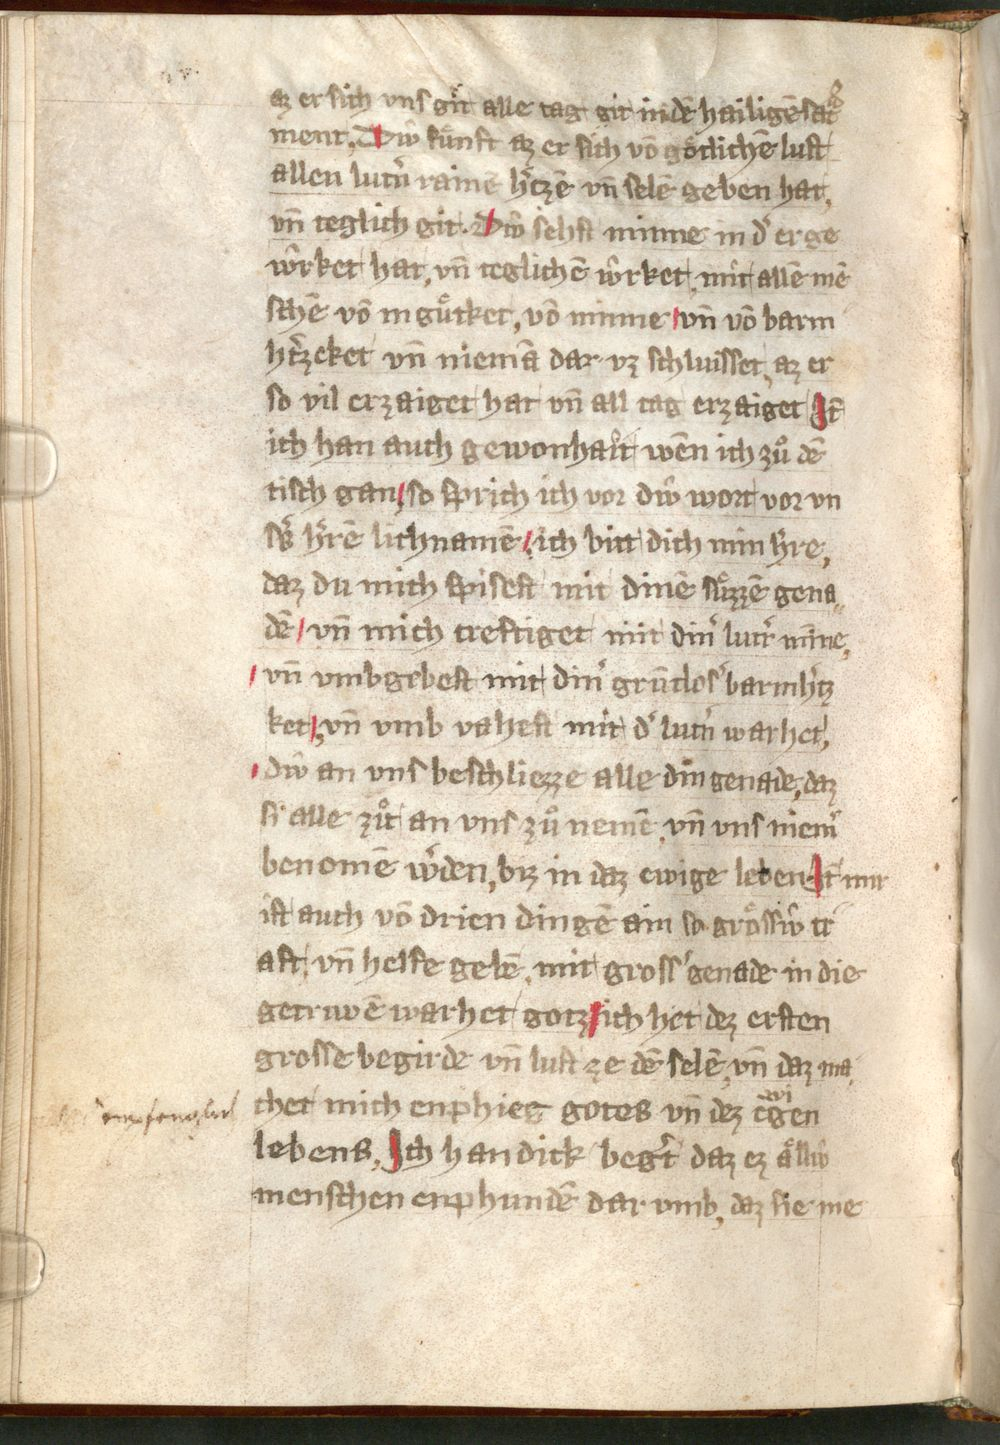 az er sich vns git alle tag git in dē hailigē sac
ment. Diẃ fúnft az er sich vō gotlichē lust
allen lutn̄ rainē htzē vn̄ selē geben hat,
vn̄ teglich git. Diẃ sehst minne in d' er ge
wrket hat, vn̄ teglichē wrket, mit allē mē
schē vō mguͦtket, vō minne vn̄ vō barm
htzeket vn̄ niemā dar vz schluisset, az er
so vil erzaiget hat vn̄ all tag erzaiget It̄
ich han auch gewonhait wēn ich zuͦ dē
tisch gan, so sprich ich vor diẃ wort vor vn
sṡ hrē lichnamē, ich bitt dich min hre,
daz du mich spisest mit dinē suͦzzē gena
dē vn̄ mich creftiget mit din' lutr̄ mīne,
vn̄ vmbgebest mit din' grūtlos' barmhtz
ket, vn̄ vmb vahest mit d' lutn̄ warhet,
diẃ an vns beschliezze alle din genade, daz
si alle zit an vns zuͦ nemē, vn̄ vns niem'
benomē w'den, biz in daz ewige leben. It̄ mir
ist auch vō drien dingē ain so groͤssiẃ cr
aft, vn̄ helfe gebē, mit gross' genade in die
getruwē warhet gotz, ich het dez ersten
grosse begirde vn̄ lust ze dē selē, vn̄ daz ma
chet mich enphieg gotes vn̄ dez ewigen
lebens, Ich han dick begt̄ daz ez aͤlliẃ
menschen enphundē dar vmb, daz sie me